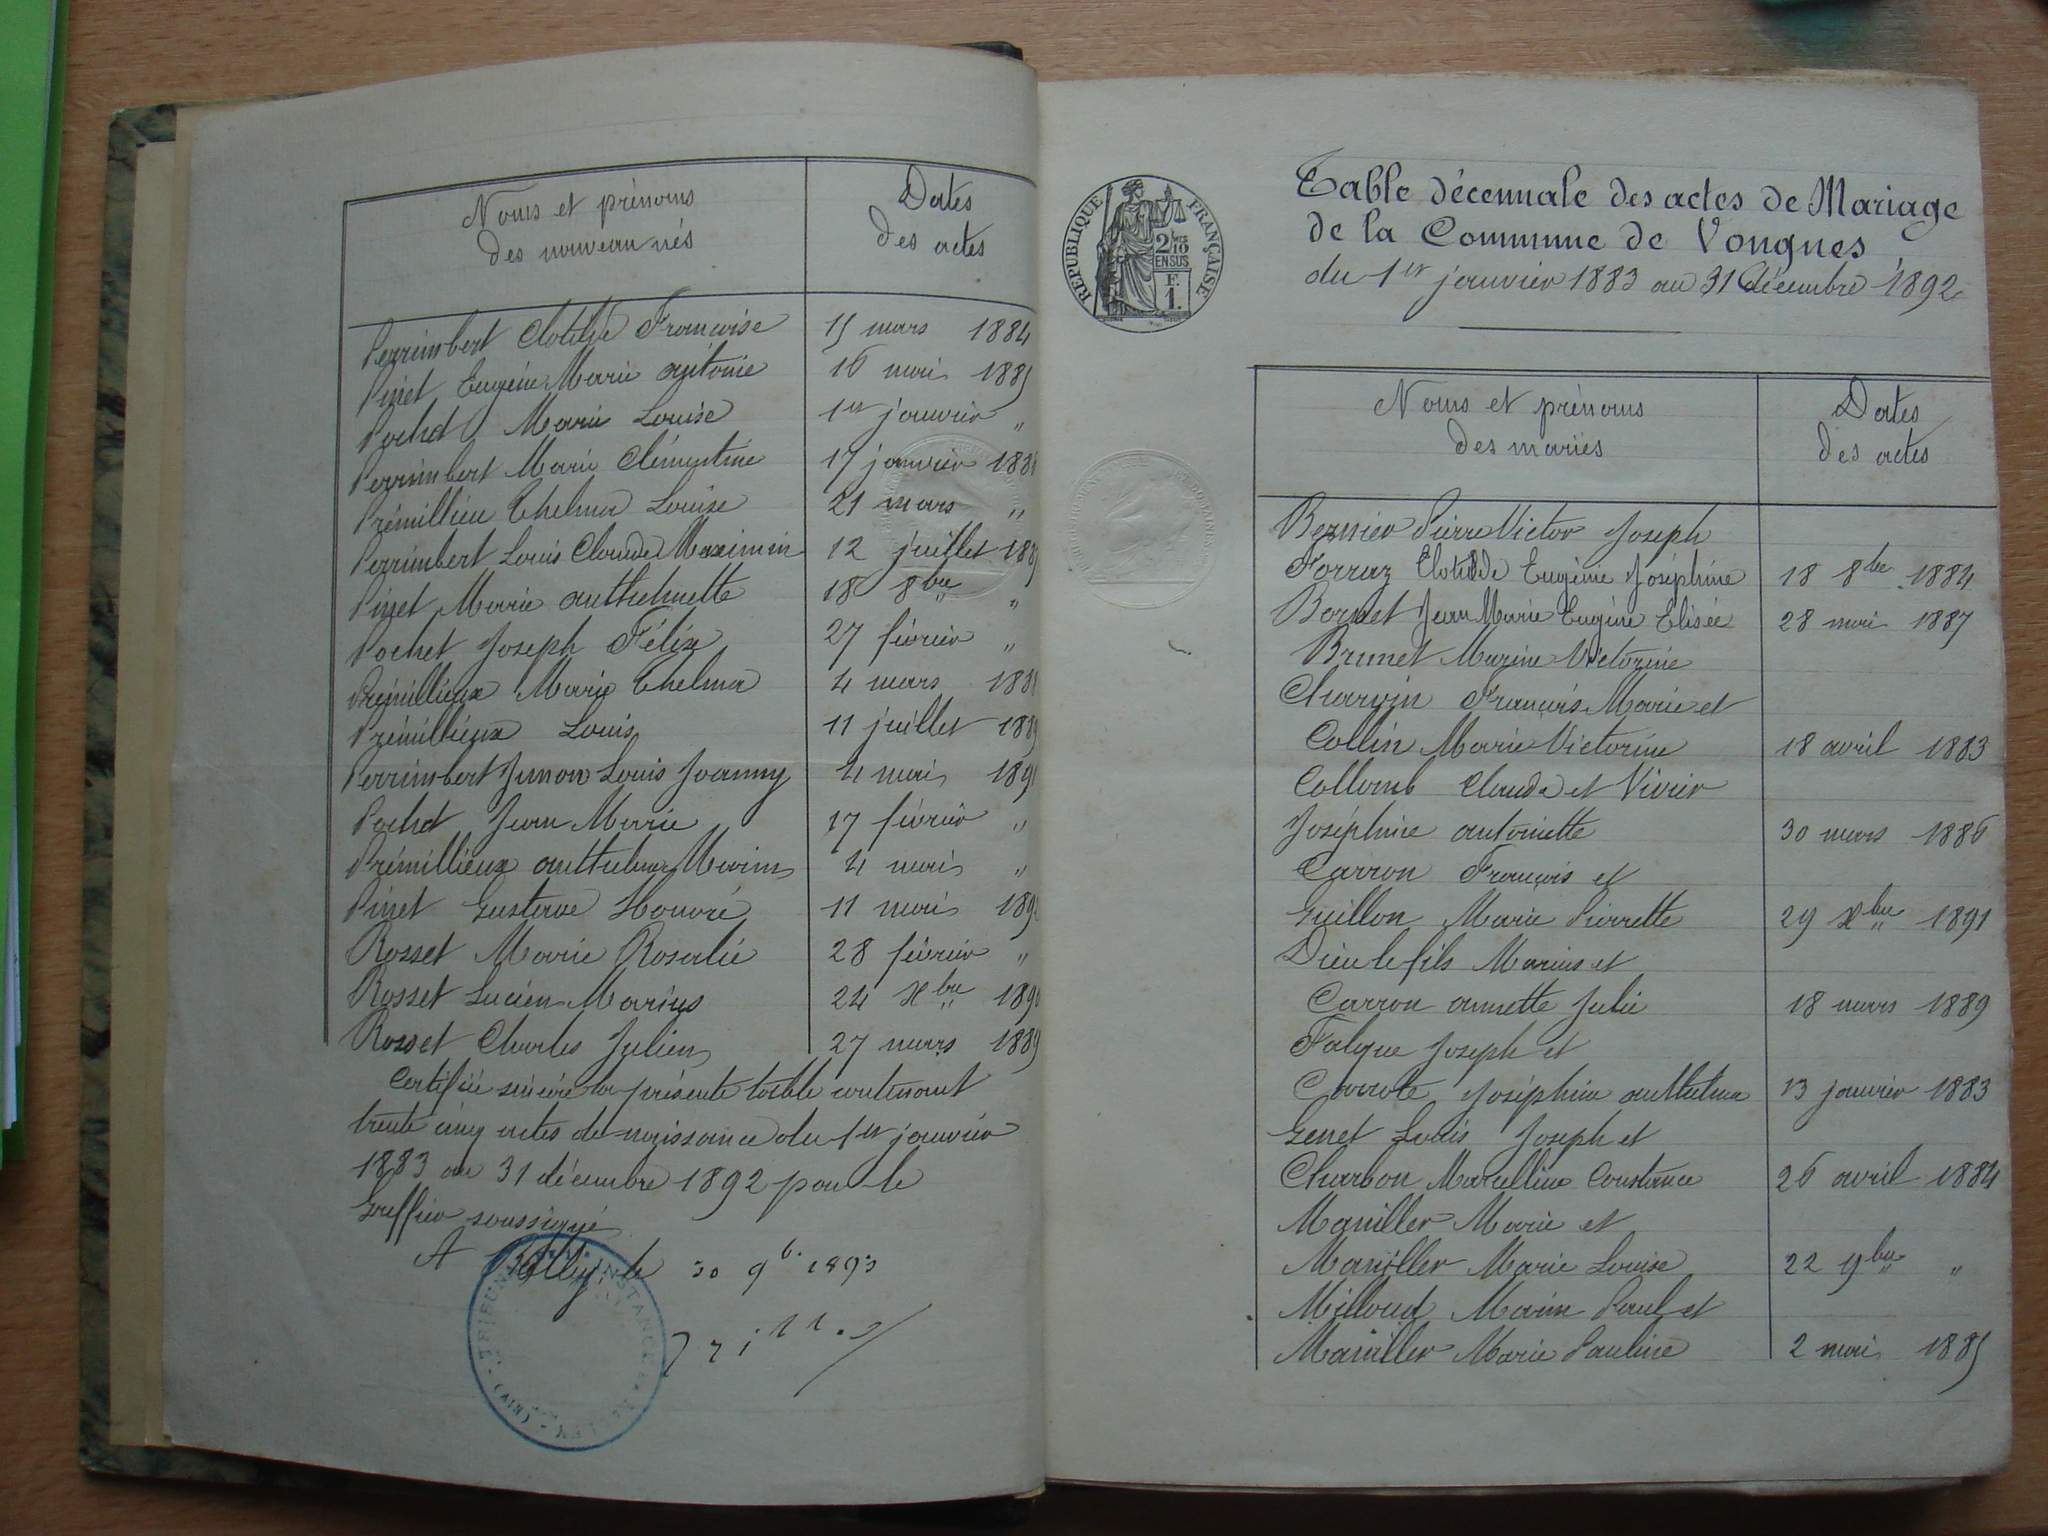 Noms et prénoms
des nouveau nés
Dates
des actes
Perrimbert Clotilde Françoise 15 mars 1884
Pinet Eugène Marie antoine 16 mai 1885
Pochet Marie Louise 1er janvier "
Perrimbert Marie Clémentine 17 janvier 1886
Prémillieu Thelma Louise 21 mars "
Perrimbert Louis Claude Maximin 12 juillet
Pinet Marie anthelmette 18 8bre "
Pochet Joseph Félix 27 février "
Prémillieux Marie Thelma 4 mars
Prémillieux Louis 11 juillet
Perrimbert Louis Joanny 4 mai
Pochet Jean Marie 17 février "
Prémillieux anthelme Marin 4 mai "
Pinet Gustave Honoré 11 mai 1892
Rosset Marie Rosalie 28 février "
Rosset Lucien Marius 24 Xbre 1890
Rosset Charles Julien 27 mars 1889
Certifié sincère la présente table contenant
trente cinq actes de naissance du 1er janvier
1883 au 31 décembre 1892 par le
Greffier soussigné
A Belley, le 30 9b. 1893
TRIBUNAL INSTANCE BELLEY (AIN)
RÉPUBLIQUE FRANÇAISE
2/10
EN SUS
F.
1.
Table décennale des actes de Mariage
de la Commune de Vongnes
du 1er janvier 1883 au 31 décembre 1892
Noms et prénoms
des mariés
Dates
des actes
Bernier Pierre Victor Joseph
Forraz Clotilde Eugénie Joséphine 18 8bre 1884
Bornet Jean Marie Eugène Elisée 28 mai 1887
Brunet Marie Victorine
Charvin François Marie et
Collin Marie Victorine 18 avril 1883
Collomb Claude et Vivier
Joséphine antoinette 30 mars 1886
Carron François et
Guillon Marie Pierrette 29 Xbre 1891
Dieulefils Marius et
Carron annette Julie 18 mars 1889
Falque Joseph et
Joséphine anthelma 13 janvier 1883
Genet Louis Joseph et
Charbon Marcelline Constance 26 avril 1884
Maniller Marie et
Maniller Marie Louise 22 9bre "
Milloud Marin Paul et
Maniller Marie Pauline 2 mai 1885